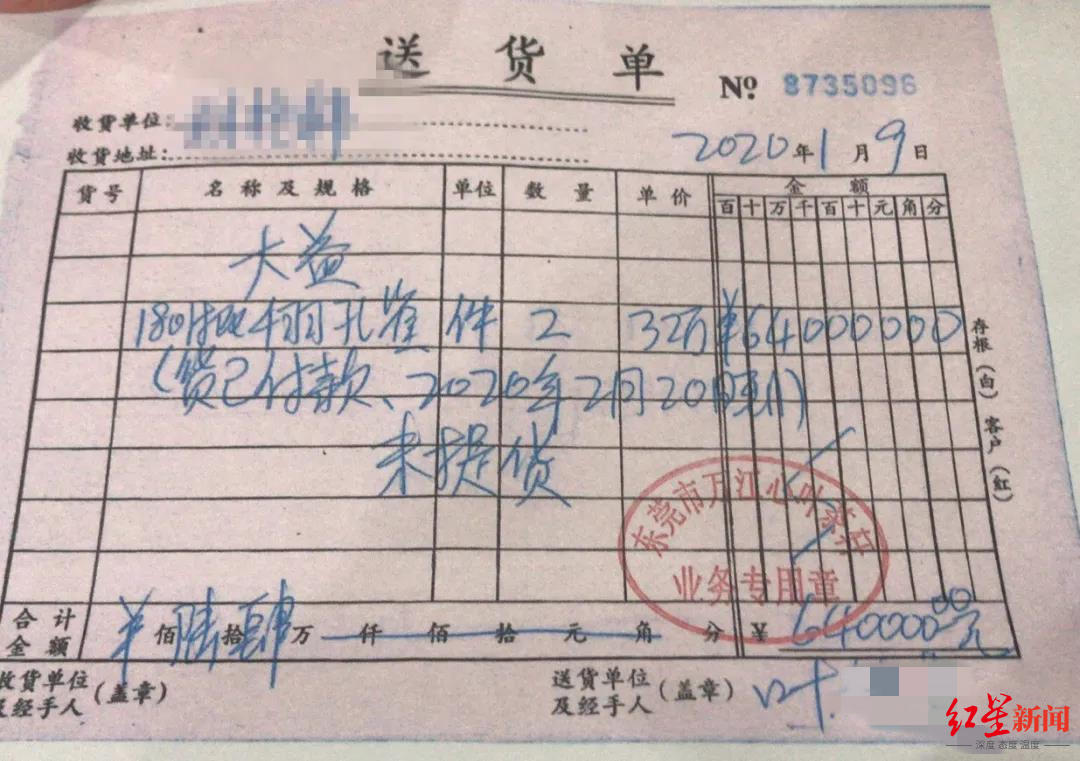 送货单
№ 8735096
收货单位:
收货地址:
2020年1月9日
货号 名称及规格 单位 数量 单价 金额
百十万千百十元角分
大益
1801批 千羽孔雀 件 2 32万 ¥64000000
(货已付款、2020年2月20日
未提货
存根(白) 客户(红)
东莞市万江心叶茶
业务专用章
合计金额 佰陆拾肆万仟佰拾元角分 ¥ 640000.00元
收货单位及经手人(盖章)
送货单位及经手人(盖章) 叶
红星新闻
深度 态度 温度